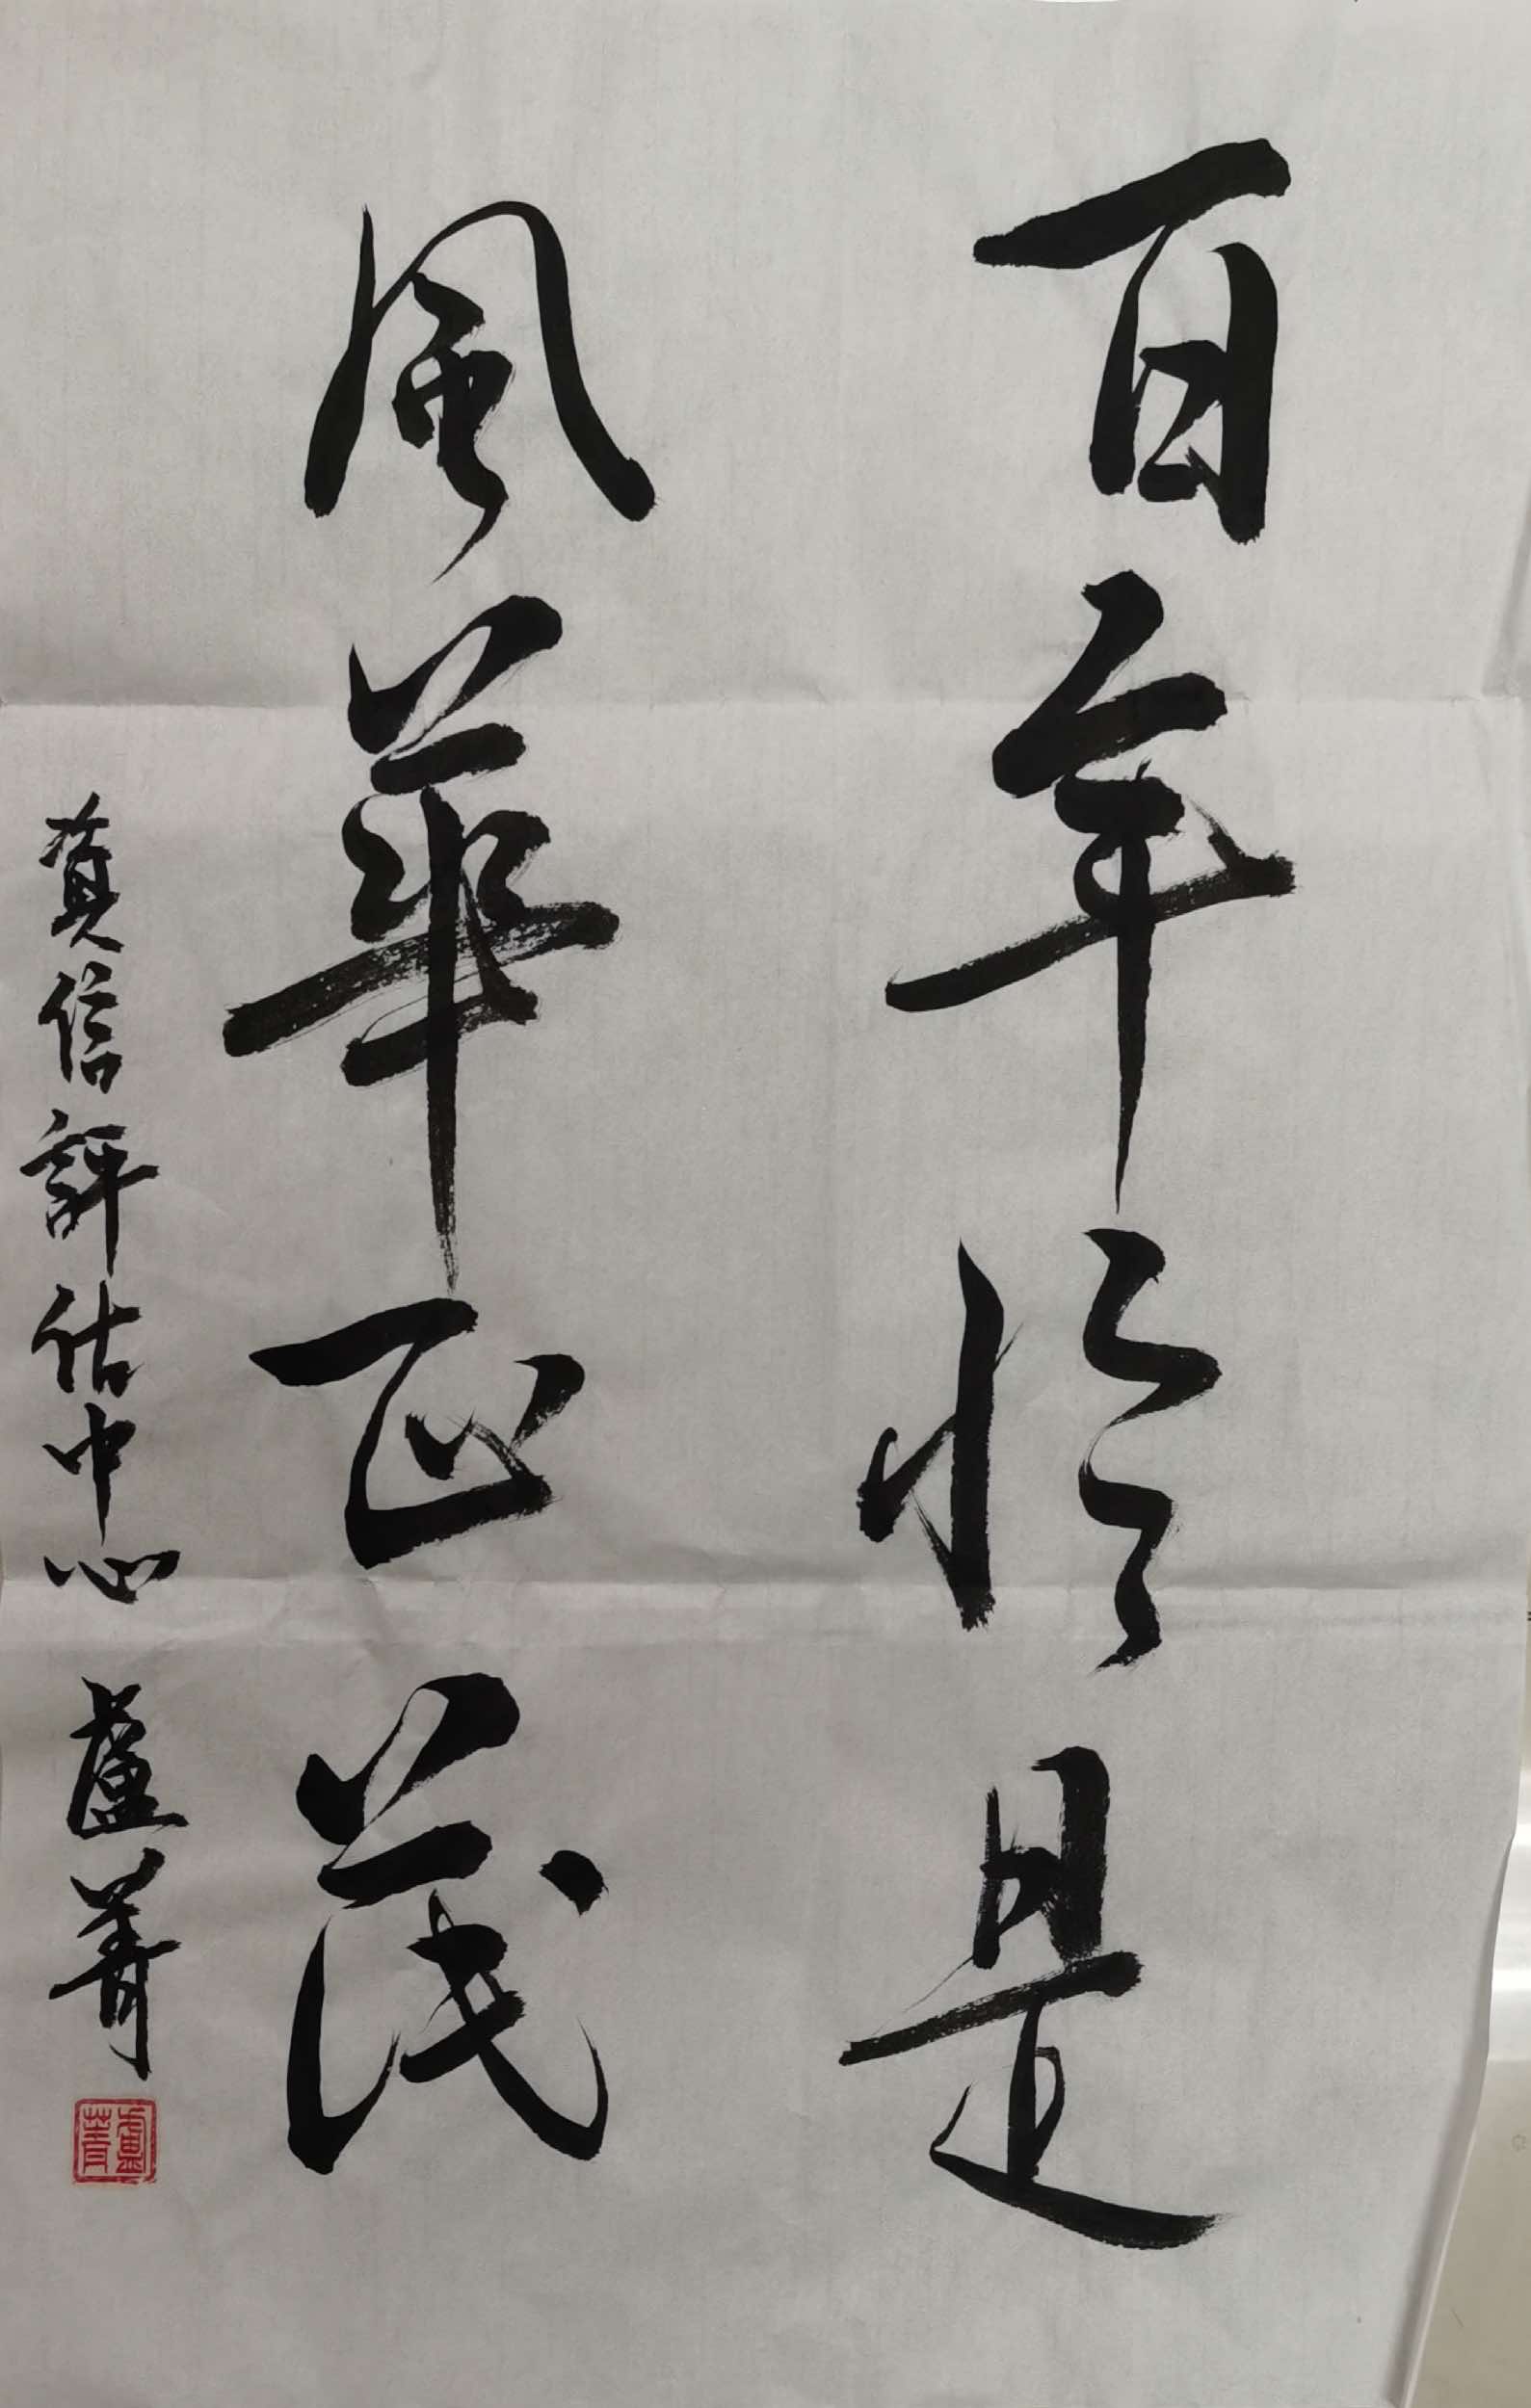 百年恰是
風華正茂
真信評估中心 盧菁
盧菁